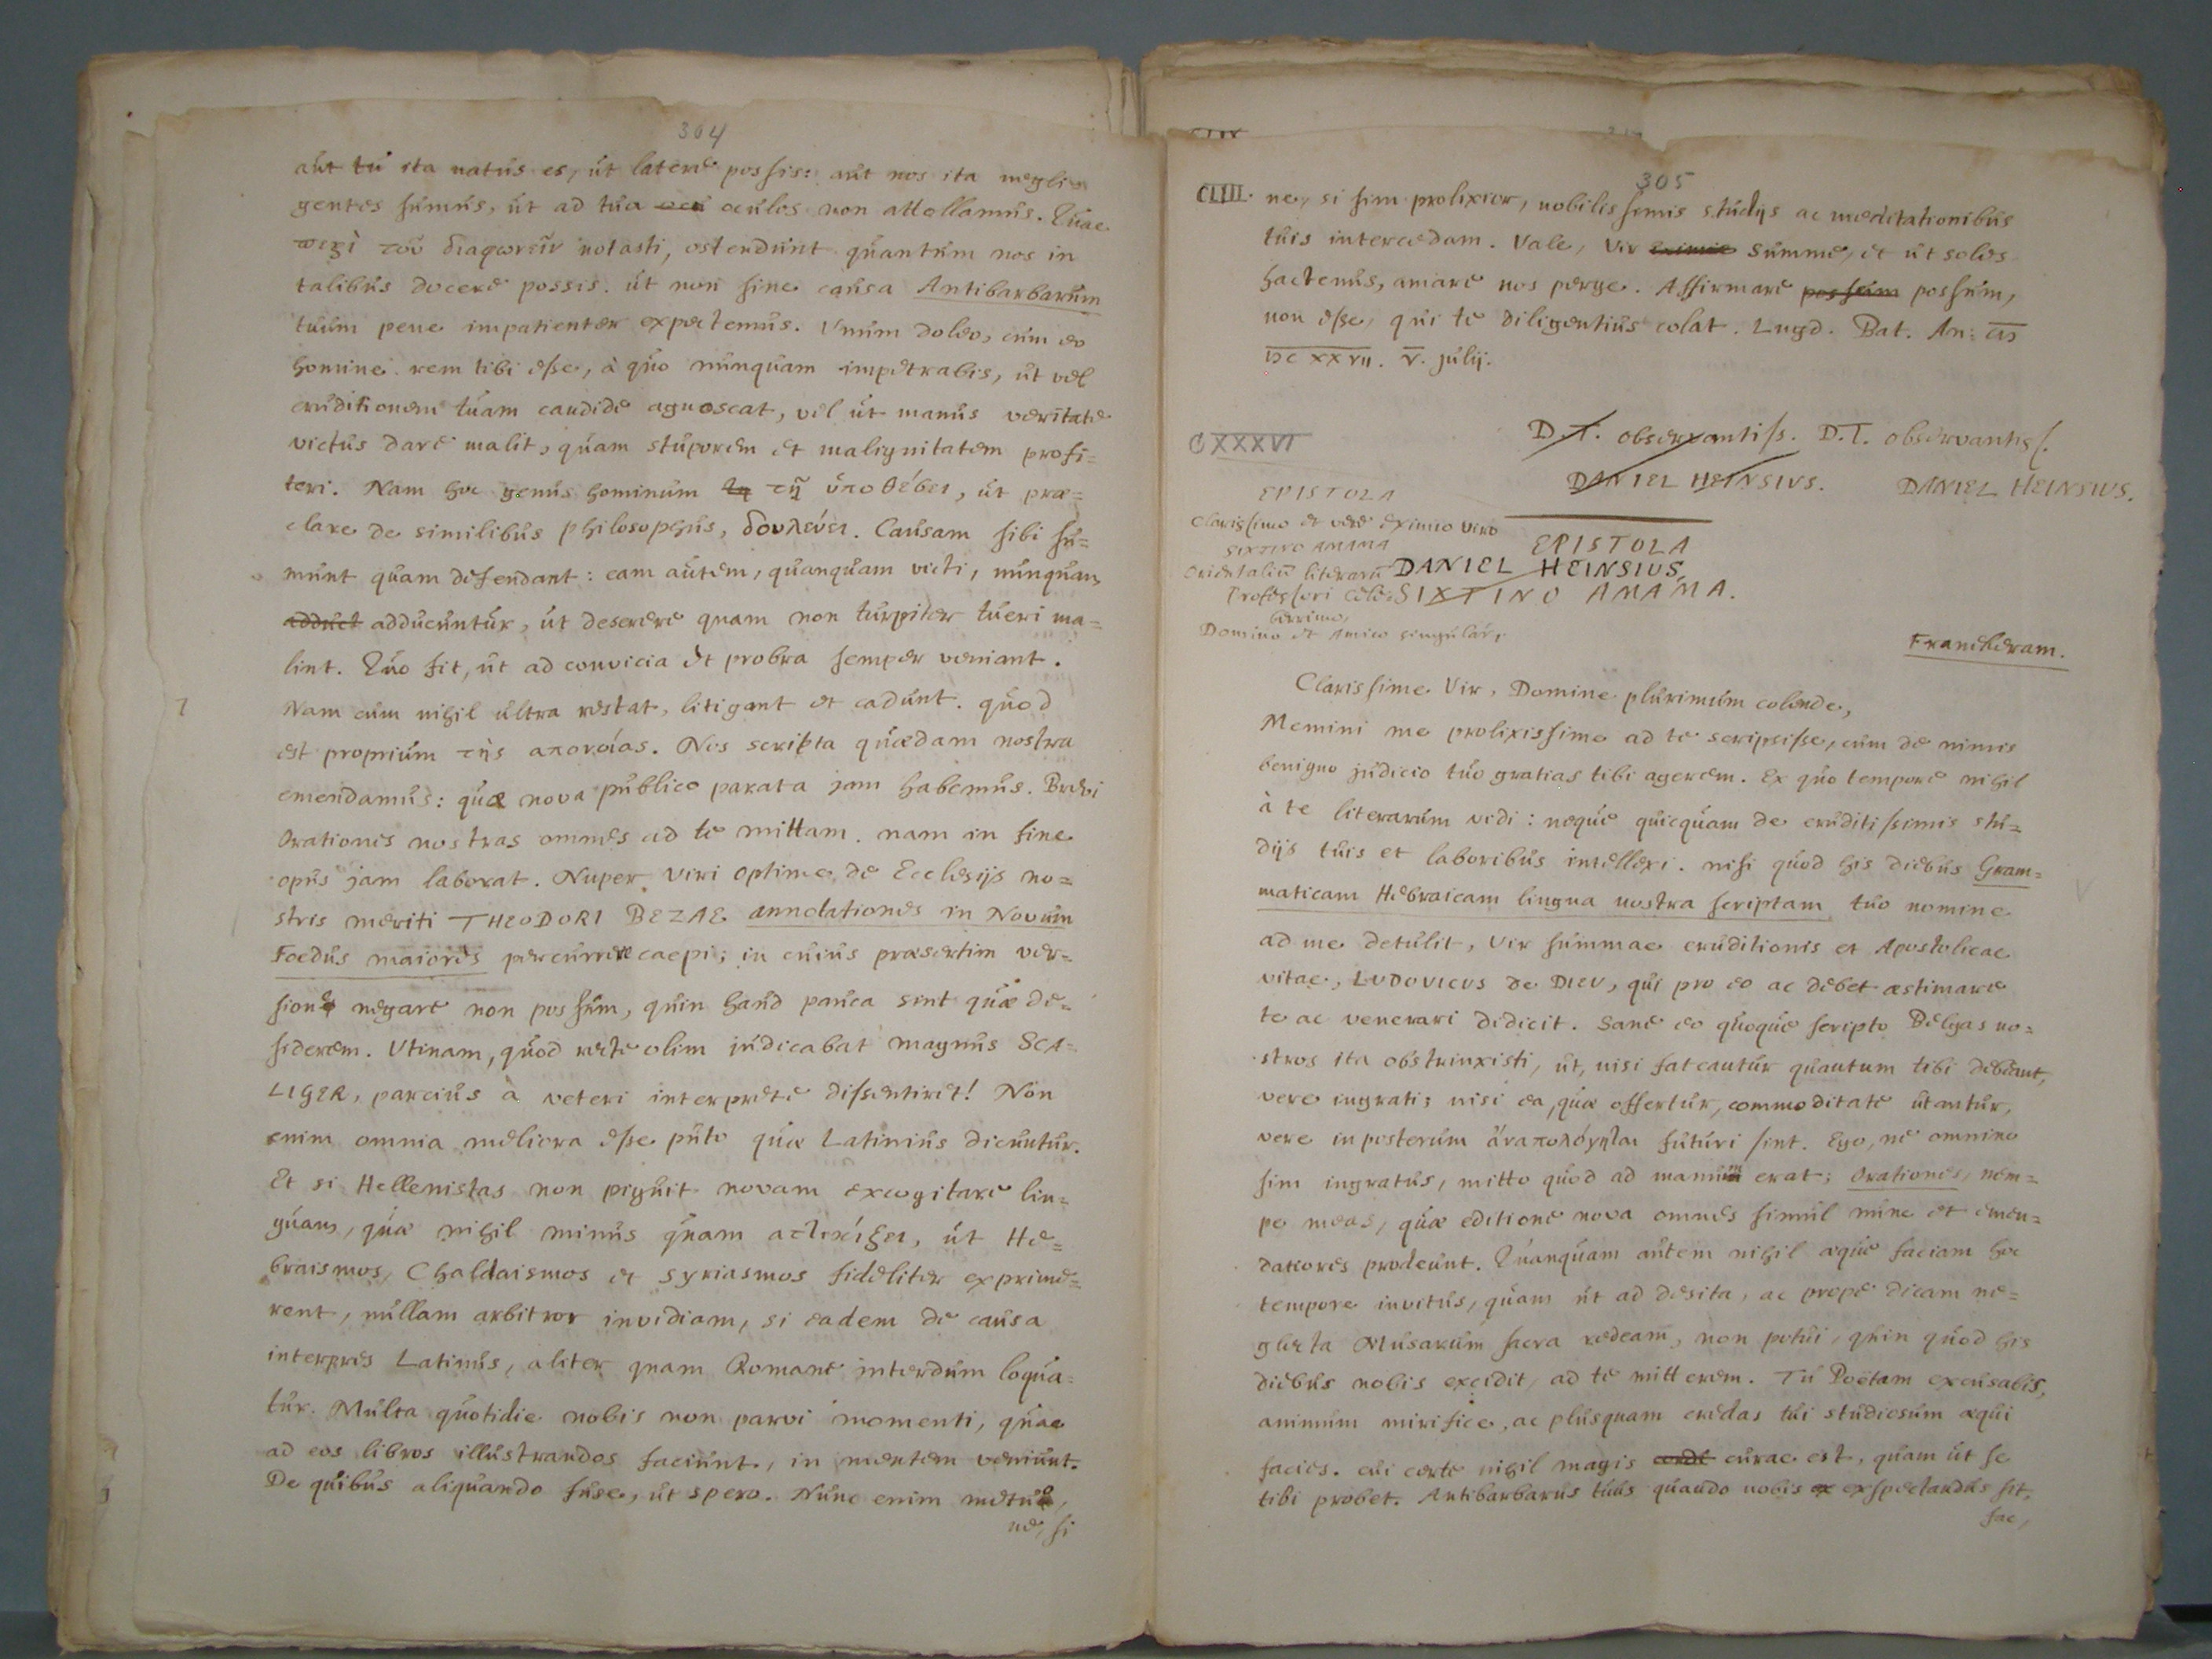 304
aut tu ita natus es, ut latere possis: aut nos ita negli=
gentes sumus, ut ad tua oculos non attollamus. Quae
περὶ τοῦ διαφωνεῖν notasti, ostendunt quantum nos in
talibus docere possis. ut non sine causa Antibarbarum
tuum pene impatienter expectemus. Vnum doleo, cum eo
homine rem tibi esse, à quo nunquam impetrabis, ut vel
eruditionem tuam candide agnoscat, vel ut manus veritate
victus dare malit, quam stuporem et malignitatem profi=
teri. Nam hoc genus hominum τῇ ὑποθέσει, ut præ=
clare de similibus philosophus, δουλεύει. Causam sibi su=
munt quam defendant: eam autem, quanquam victi, nunquam
adduct adducuntur, ut deserere quam non turpiter tueri ma=
lint. Quo fit, ut ad convicia et probra semper veniant.
Nam cum nihil ultra restat, litigant et cadunt. quod
est proprium τῆς ἀπονοίας. Nos scripta quædam nostra
emendamus: quæ nova publico parata jam habemus. Brevi
Orationes nostras omnes ad te mittam. nam in fine
opus jam laborat. Nuper viri optime de Ecclesijs no=
stris meriti THEODORI BEZAE annotationes in Novum
Foedus maiores percurrere caepi; in cuius præsertim ver=
sione negare non possum, quin haud pauca sint quæ de=
siderem. Vtinam, quod recte olim judicabat magnus SCA=
LIGER, parcius à veteri interprete dissentiret! Non
enim omnia meliora esse puto quæ Latinius dicuntur.
Et si Hellenistas non piguit novam excogitare lin=
guam, quæ nihil minus quam ἀττικίζει, ut He=
braismos, Chaldaismos et Syriasmos fideliter exprime=
rent, nullam arbitror invidiam, si eadem de causa
interpres Latinus, aliter quam Romane interdum loqua=
tur. Multa quotidie nobis non parvi momenti, quae
ad eos libros illustrandos faciunt, in mentem veniunt.
De quibus aliquando fuse, ut spero. Nunc enim metuo,
ne, si
305
CLIII. ne, si sim prolixior, nobilissimis studijs ac meditationibus
tuis intercedam. Vale, Vir eximie summe, et ut soles
hactenus, amare nos perge. Affirmare possum possum,
non esse, qui te diligentius colat. Lugd. Bat. An: CIↃ
IↃC XXVII. V. julij.
D.T. observantiss. D.T. observantiss.
DANIEL HEINSIVS. DANIEL HEINSIVS.
CXXXVI
EPISTOLA
Clarissimo et vere eximio viro
SIXTINO AMAMA
Orientaliū literarū
Professori cele=
berrimo,
Domino et Amico singulari
EPISTOLA
DANIEL HEINSIUS,
SIXTINO AMAMA.
Franekeram.
Clarissime Vir, Domine plurimum colende,
Memini me prolixissime ad te scripsisse, cum de nimis
benigno judicio tuo gratias tibi agerem. Ex quo tempore nihil
à te literarum vidi: neque quicquam de eruditissimis stu=
dijs tuis et laboribus intellexi. nisi quod his diebus Gram=
maticam Hebraicam lingua nostra scriptam tuo nomine
ad me detulit, vir summae eruditionis et Apostolicae
vitae, LVDOVICVS de DIEV, qui pro eo ac debet æstimare
te ac venerari didicit. Sane eo quoque scripto Belgas no=
stros ita obstrinxisti, ut, nisi fateantur quantum tibi debeant,
vere ingrati; nisi ea, quæ offertur, commoditate utantur,
vere in posterum ἀναπολόγηται futuri sint. Ego, ne omnino
sim ingratus, mitto quod ad manum erat; Orationes, nem=
pe meas, quæ editione nova omnes simul nunc et emen=
datiores prodeunt. Quanquam autem nihil æque faciam hoc
tempore invitus, quam ut ad desita, ac prope dicam ne=
glecta Musarum sacra redeam, non potui, quin quod his
diebus nobis excidit, ad te mitterem. Tu Poëtam excusabis,
animum mirifice, ac plusquam credas tui studiosum æqui
facies. cui certe nihil magis curae est, quam ut se
tibi probet. Antibarbarus tuus quando nobis ex exspectandus sit,
fac,